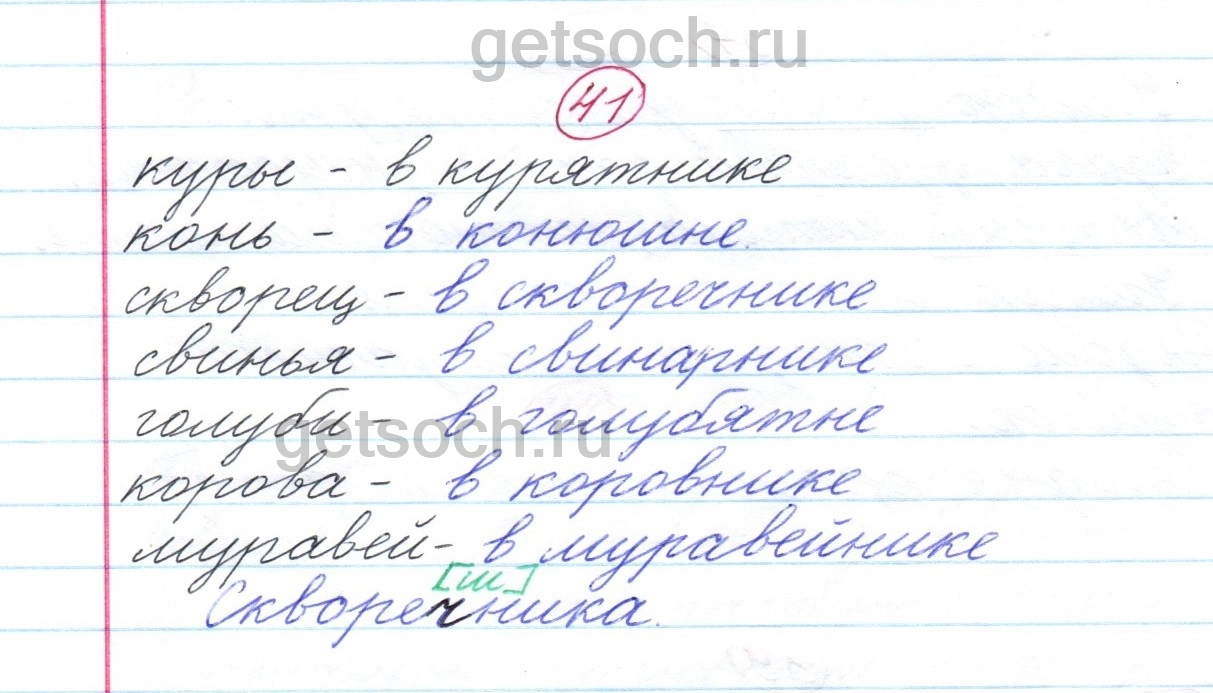 getsoch.ru
41
куры - в курятнике
конь - в конюшне.
скворец - в скворечнике
свинья - в свинарнике
голуби - в голубятне
getsoch.ru
корова - в коровнике
муравей - в муравейнике
[ш]
Скворечника.